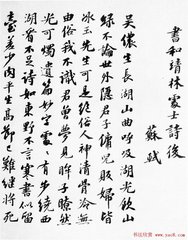 書和靖林處士詩後
蘇軾
吳儂生長湖山曲呼吸湖光飲山
淥不論世外隱君子傭兒販婦皆
冰玉先生可是絕俗人神清骨冷無
由俗我不識君曾夢見眸子瞭然
光可燭遺篇妙字處處有步繞西
湖看不足詩如東野不言寒書似留
臺差少肉平生高節已難繼將死
书法欣赏
www.yac8.com